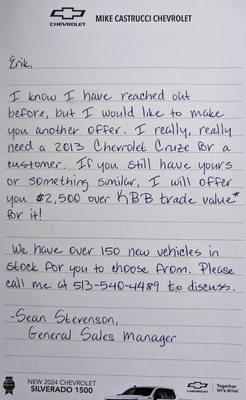 CHEVROLET
MIKE CASTRUCCI CHEVROLET
Erik,
I know I have reached out
before, but I would like to make
you another offer. I really, really
need a 2013 Chevrolet Cruze for a
customer. If you still have yours
or something similar, I will offer
you $2,500 over KBB trade value*
for it!
We have over 150 new vehicles in
stock for you to choose from. Please
call me at 513-540-4489 to discuss.
-Sean Stevenson,
General Sales Manager
NEW 2024 CHEVROLET
SILVERADO 1500
CHEVROLET
Together
let's drive